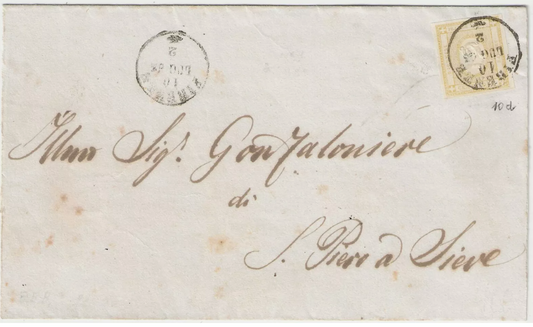 FIRENZE
10
LUG 63
2
FIRENZE
10
LUG 63
2
10d
Illmo Sigr. Gonfaloniere
di
S. Piero a Sieve